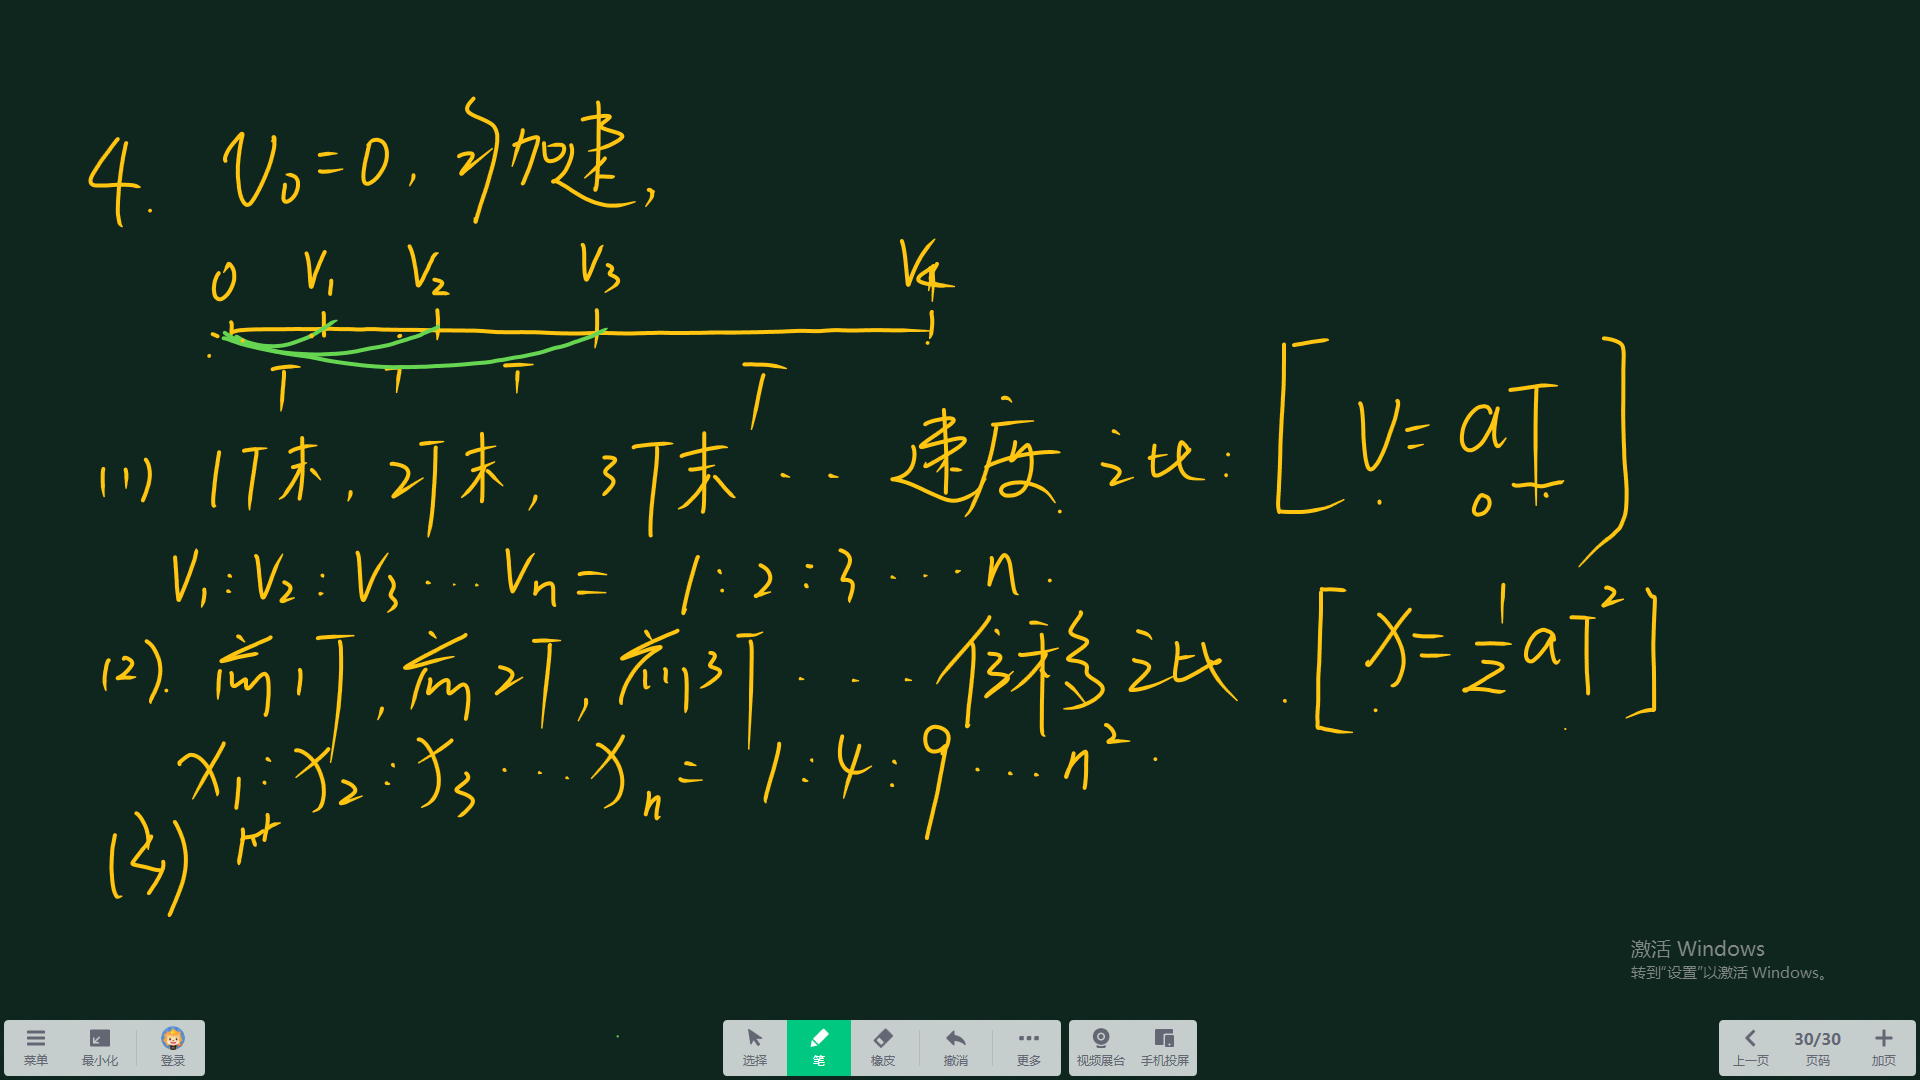 4. V₀=0, 匀加速,
0 V₁ V₂ V₃ V₄
T T T T
(1) 1T末, 2T末, 3T末 ... 速度之比: [V=aT]
V₁:V₂:V₃...Vn= 1:2:3...n.
(2). 前1T, 前2T, 前3T ... 位移之比. [x=½aT²]
x₁:x₂:x₃...xn=1:4:9...n².
(3)
激活 Windows
转到“设置”以激活 Windows。
菜单 最小化 登录 选择 笔 橡皮 撤消 更多 视频展台 手机投屏 上一页 30/30 页码 加页